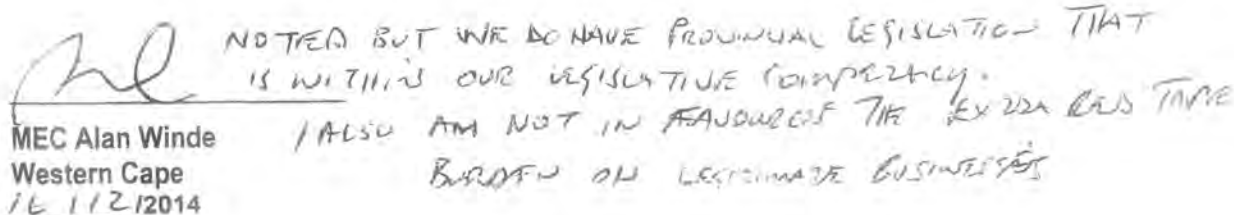 NOTED BUT WE DO HAVE PROVINCIAL LEGISLATION THAT
IS WITHIN OUR LEGISLATIVE COMPETENCY.
I ALSO AM NOT IN FAVOUR OF THE EXTRA RED TAPE
BURDEN ON LEGITIMATE BUSINESSES
MEC Alan Winde
Western Cape
/12/2014